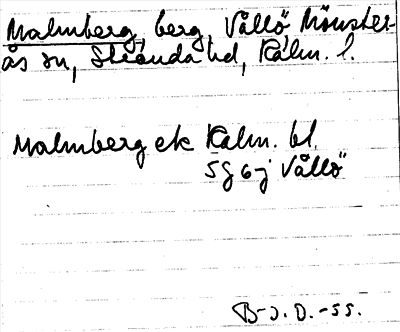 Malmberg, berg, Vållö, Mönster-
ås sn, Stranda hd, Kalm. l.
Malmberg ek Kalm. bl.
5g 6j Vållö
B-J.D.-55.